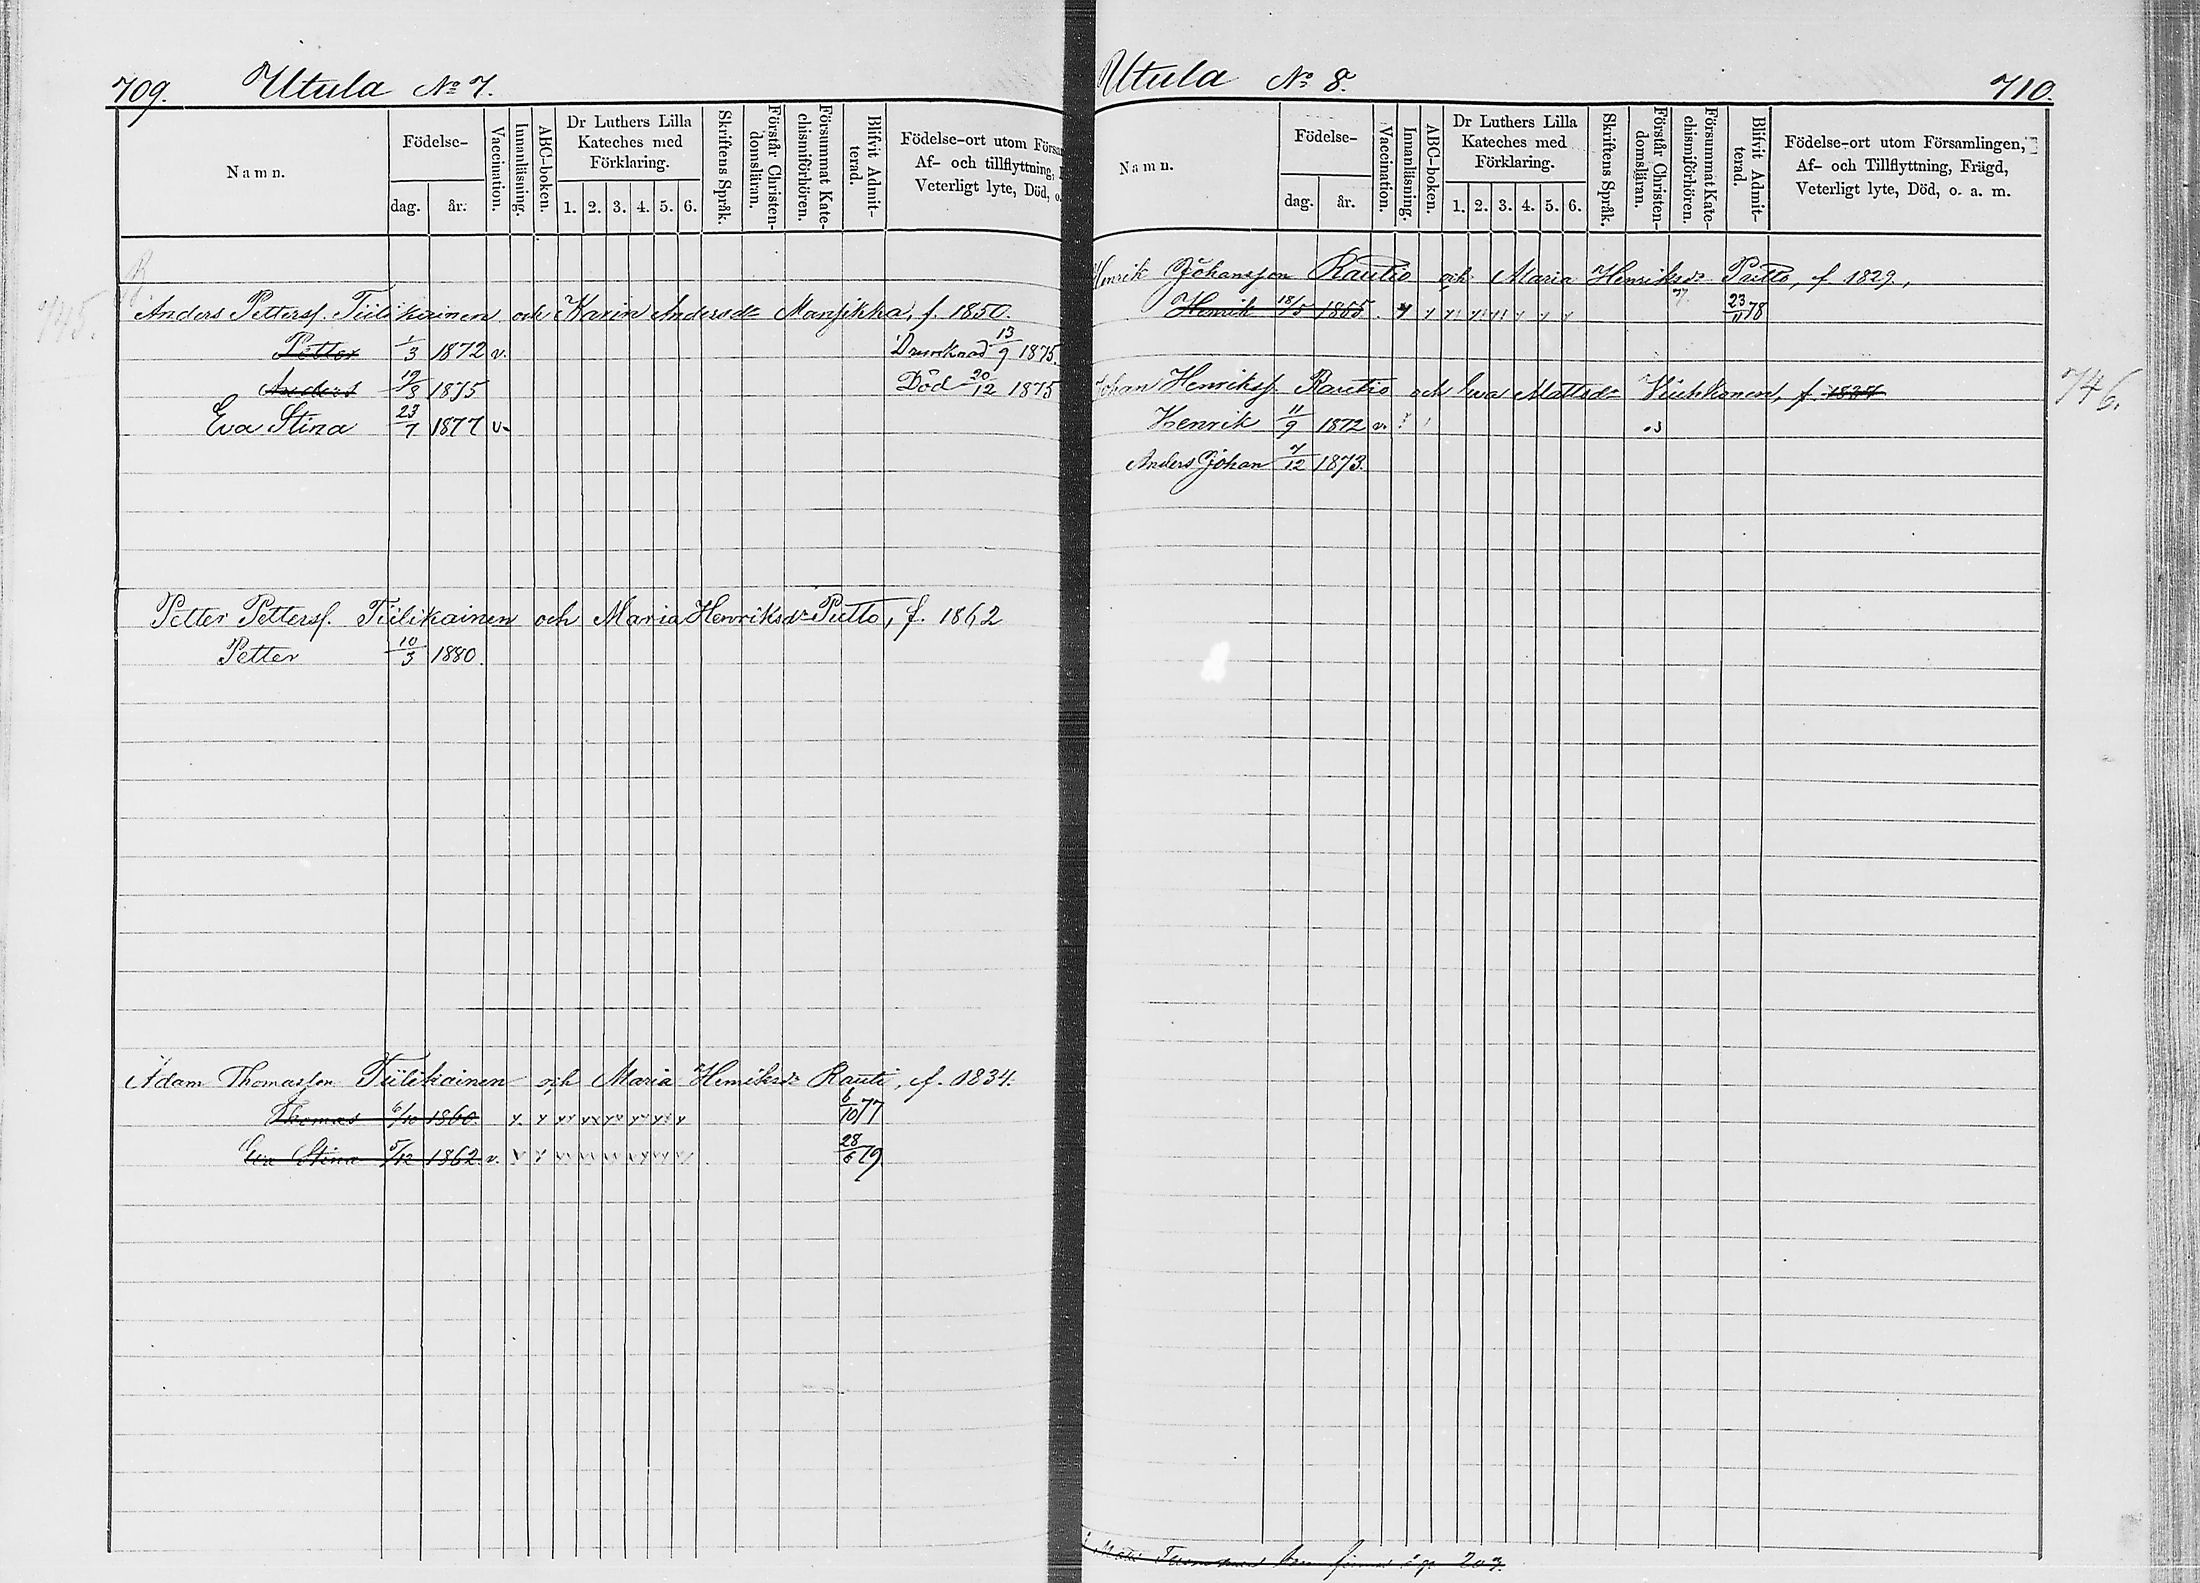 709. Utula No 7.
Namn. Födelse- dag. år. Vaccination. Innanläsning. ABC-boken. Dr Luthers Lilla Kateches med Förklaring. 1. 2. 3. 4. 5. 6. Skriftens Språk. Förstår Christen-domsläran. Försummat Kate-chismiförhören. Blifvit Admit-terad. Födelse-ort utom Försa
Af- och tillflyttning,
Veterligt lyte, Död, o.
745.
Anders Petterss. Tiilikainen och Karin Andersdr Mansikka, f. 1850.
Petter 1/3 1872 v. Drunknad 13/9 1875.
Anders 19/3 1875 Död 20/12 1875
Eva Stina 23/7 1877 v.
Petter Petterss. Tiilikainen och Maria Henriksdr Putto, f. 1862
Petter 10/3 1880.
Adam Thomasson Tiilikainen och Maria Henriksdr Rauti, f. 1834.
Thomas 6/10 1860. 6/10 77
Eva Stina 5/12 1862. v. 28/6 79
Utula No 8. 710.
Namn. Födelse- dag. år. Vaccination. Innanläsning. ABC-boken. Dr Luthers Lilla Kateches med Förklaring. 1. 2. 3. 4. 5. 6. Skriftens Språk. Förstår Christen-domsläran. Försummat Kate-chismiförhören. Blifvit Admit-terad. Födelse-ort utom Församlingen,
Af- och Tillflyttning, Frägd,
Veterligt lyte, Död, o. a. m.
Henrik Johansson Rautio och Maria Henriksdr Putto, f. 1829.
Henrik 18/5 1855. 77. 23/11 78
Johan Henrikss. Rautio och Eva Mattsdr f. 1834
746.
Henrik 11/9 1872 v.
Anders Johan 7/12 1873.
203.